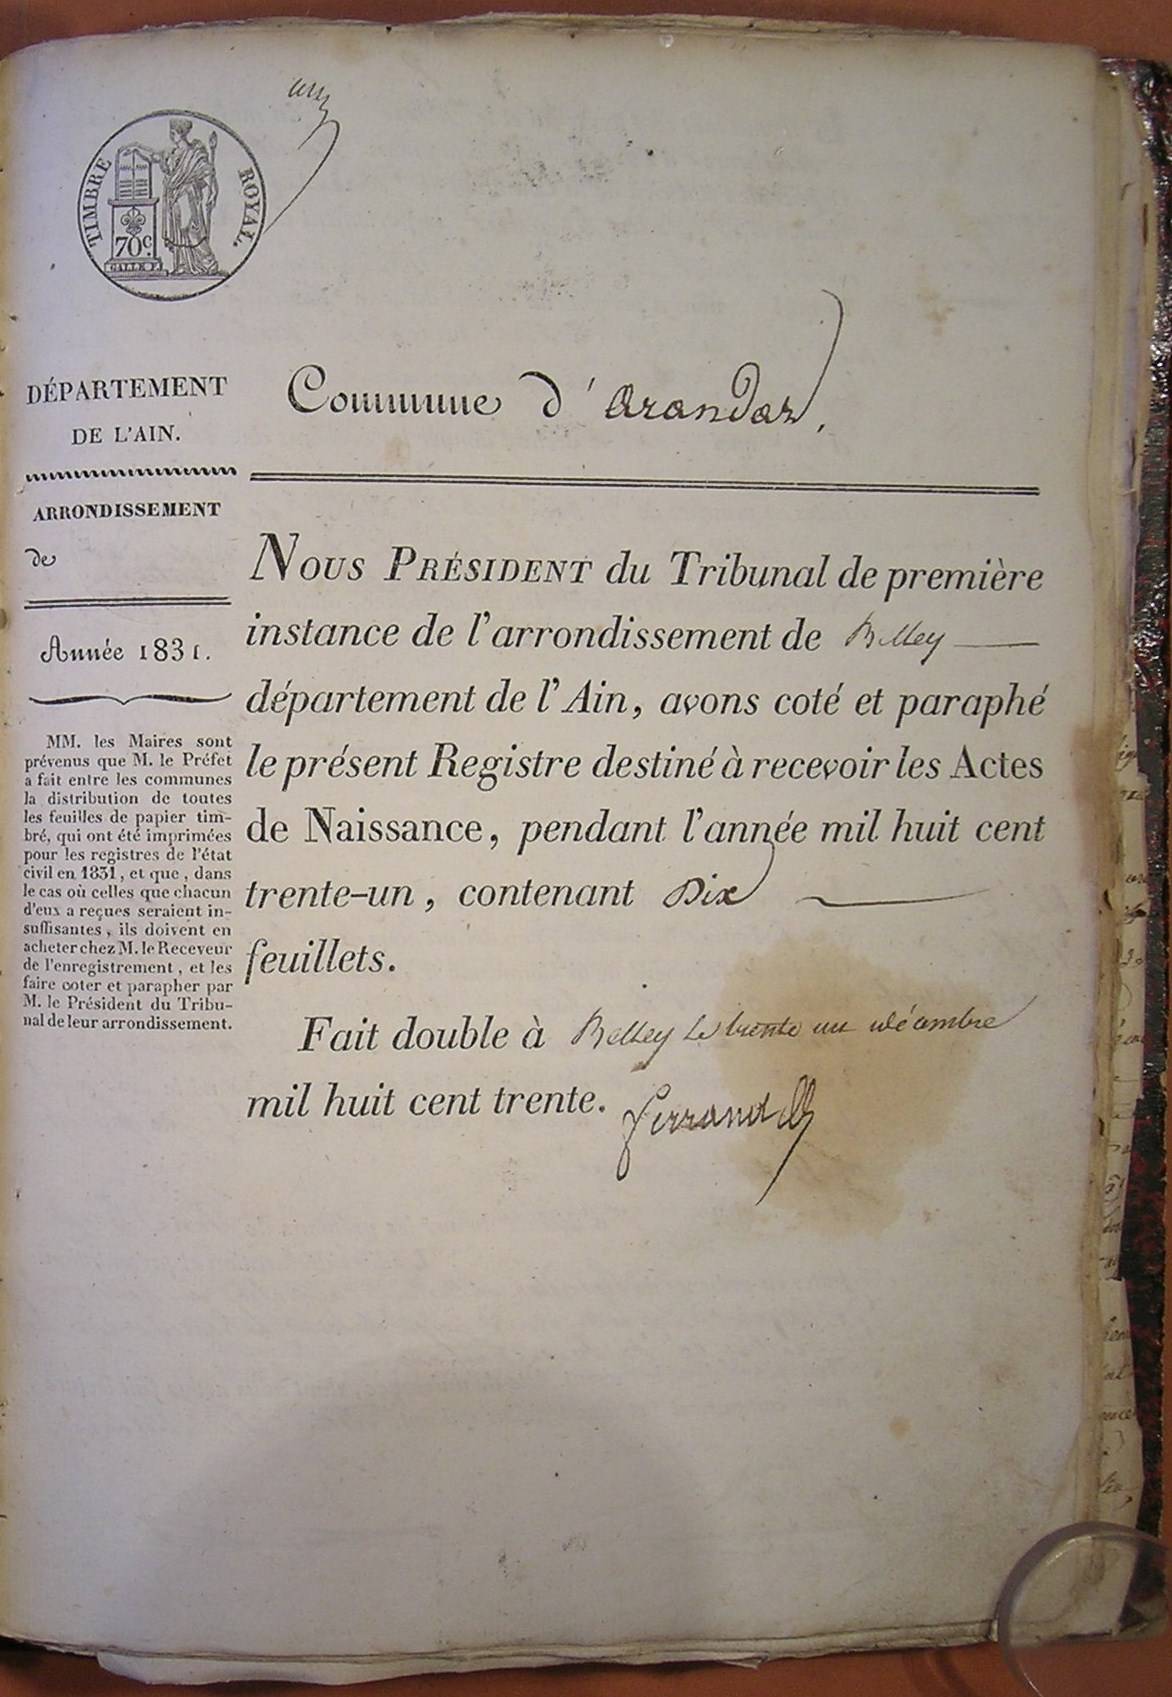 un
TIMBRE ROYAL.
70c.
GALLE F.
DÉPARTEMENT
DE L'AIN.
ARRONDISSEMENT
de
Année 1831.
MM. les Maires sont
prévenus que M. le Préfet
a fait entre les communes
la distribution de toutes
les feuilles de papier tim-
bré, qui ont été imprimées
pour les registres de l'état
civil en 1831, et que, dans
le cas où celles que chacun
d'eux a reçues seraient in-
suffisantes, ils doivent en
acheter chez M. le Receveur
de l'enregistrement, et les
faire coter et parapher par
M. le Président du Tribu-
nal de leur arrondissement.
Commune d'arandas,
NOUS PRÉSIDENT du Tribunal de première
instance de l'arrondissement de Belley
département de l'Ain, avons coté et paraphé
le présent Registre destiné à recevoir les Actes
de Naissance, pendant l'année mil huit cent
trente-un, contenant Dix
feuillets.
Fait double à Belley le trente un décembre
mil huit cent trente.